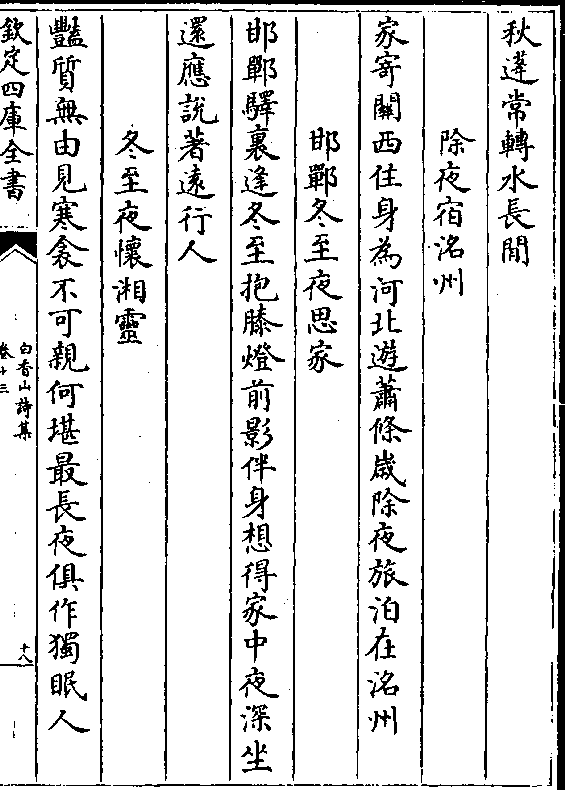 秋蓬常轉水長閒
除夜宿洺州
家寄關西住身為河北遊蕭條歲除夜旅泊在洺州
邯鄲冬至夜思家
邯鄲驛裏逢冬至抱膝燈前影伴身想得家中夜深坐
還應說著遠行人
冬至夜懷湘靈
豔質無由見寒衾不可親何堪最長夜俱作獨眠人
欽定四庫全書
白香山詩集
卷十三
十八